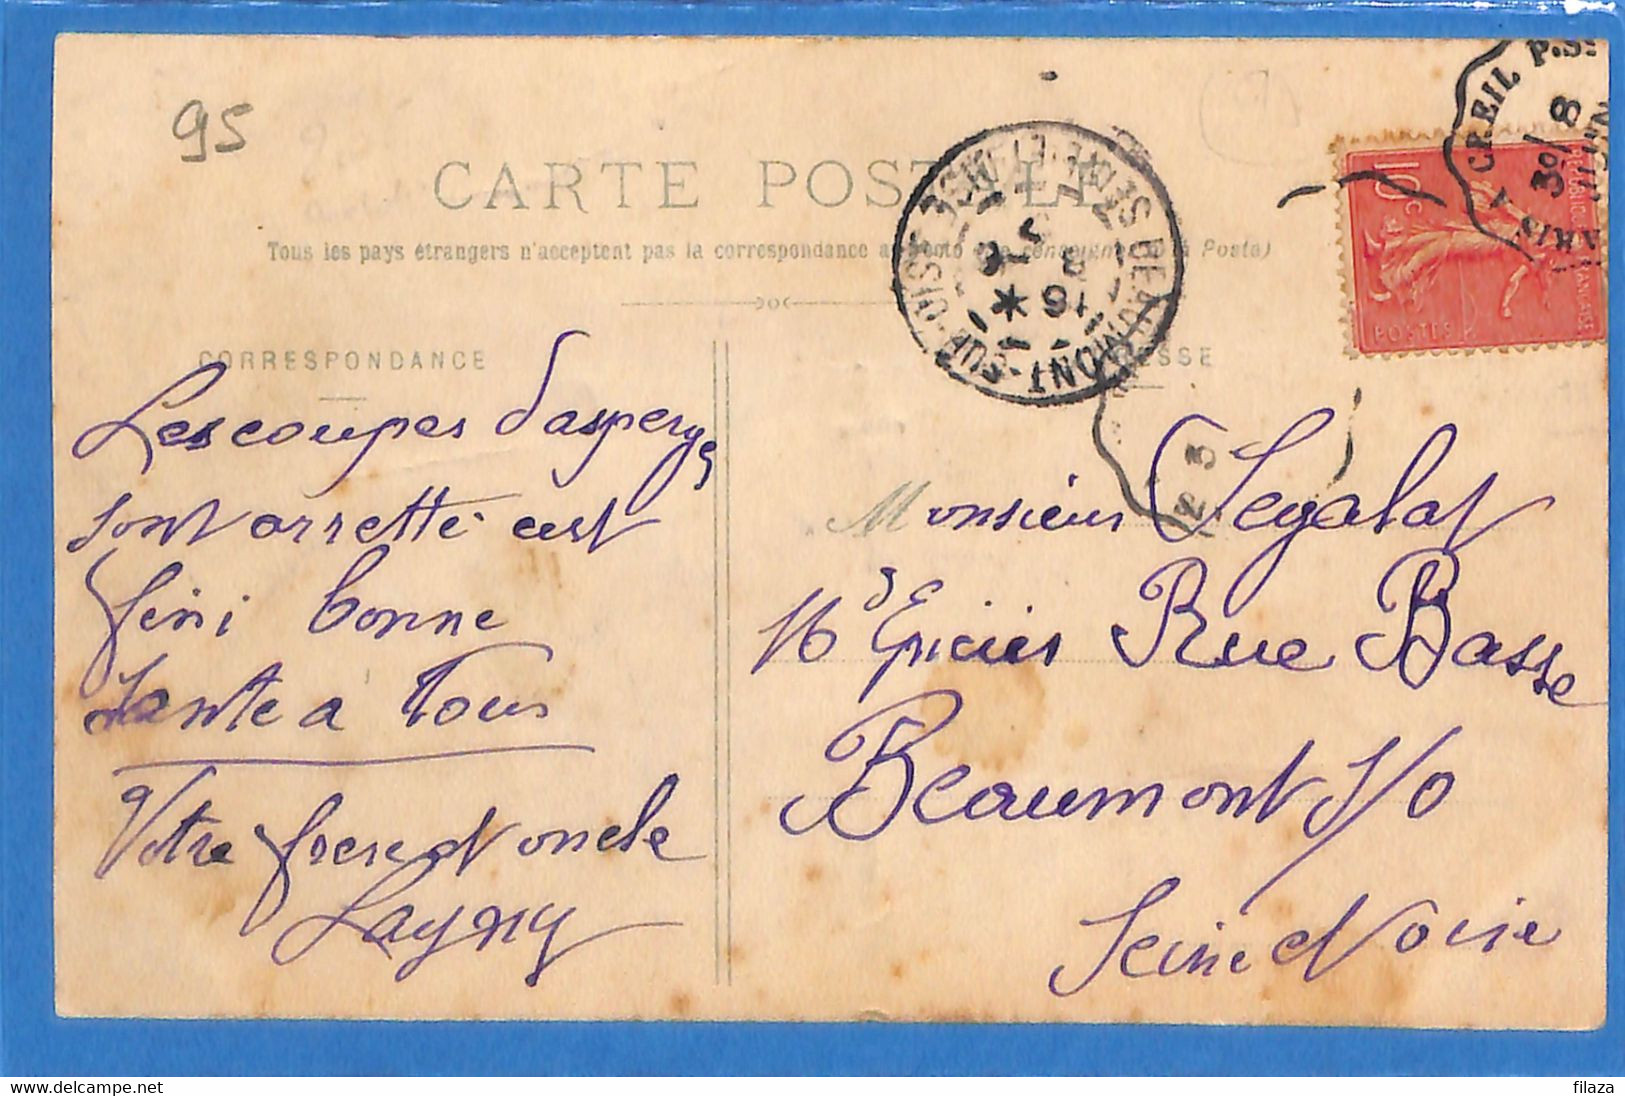 95
CARTE POSTALE
Tous les pays étrangers n'acceptent pas la correspondance au recto (se renseigner à la Poste)
CORRESPONDANCE
ADRESSE
Les coupes d'asperges
sont arretté cest
fini bonne
sante a tous
Votre frere et oncle
Lagny
Monsieur Segalat
Md Epicier Rue Basse
Beaumont S/O
Seine et Oise
BEAUMONT-SUR-OISE SEINE-ET-OISE
CREIL
10 c
POSTES
delcampe.net
filaza